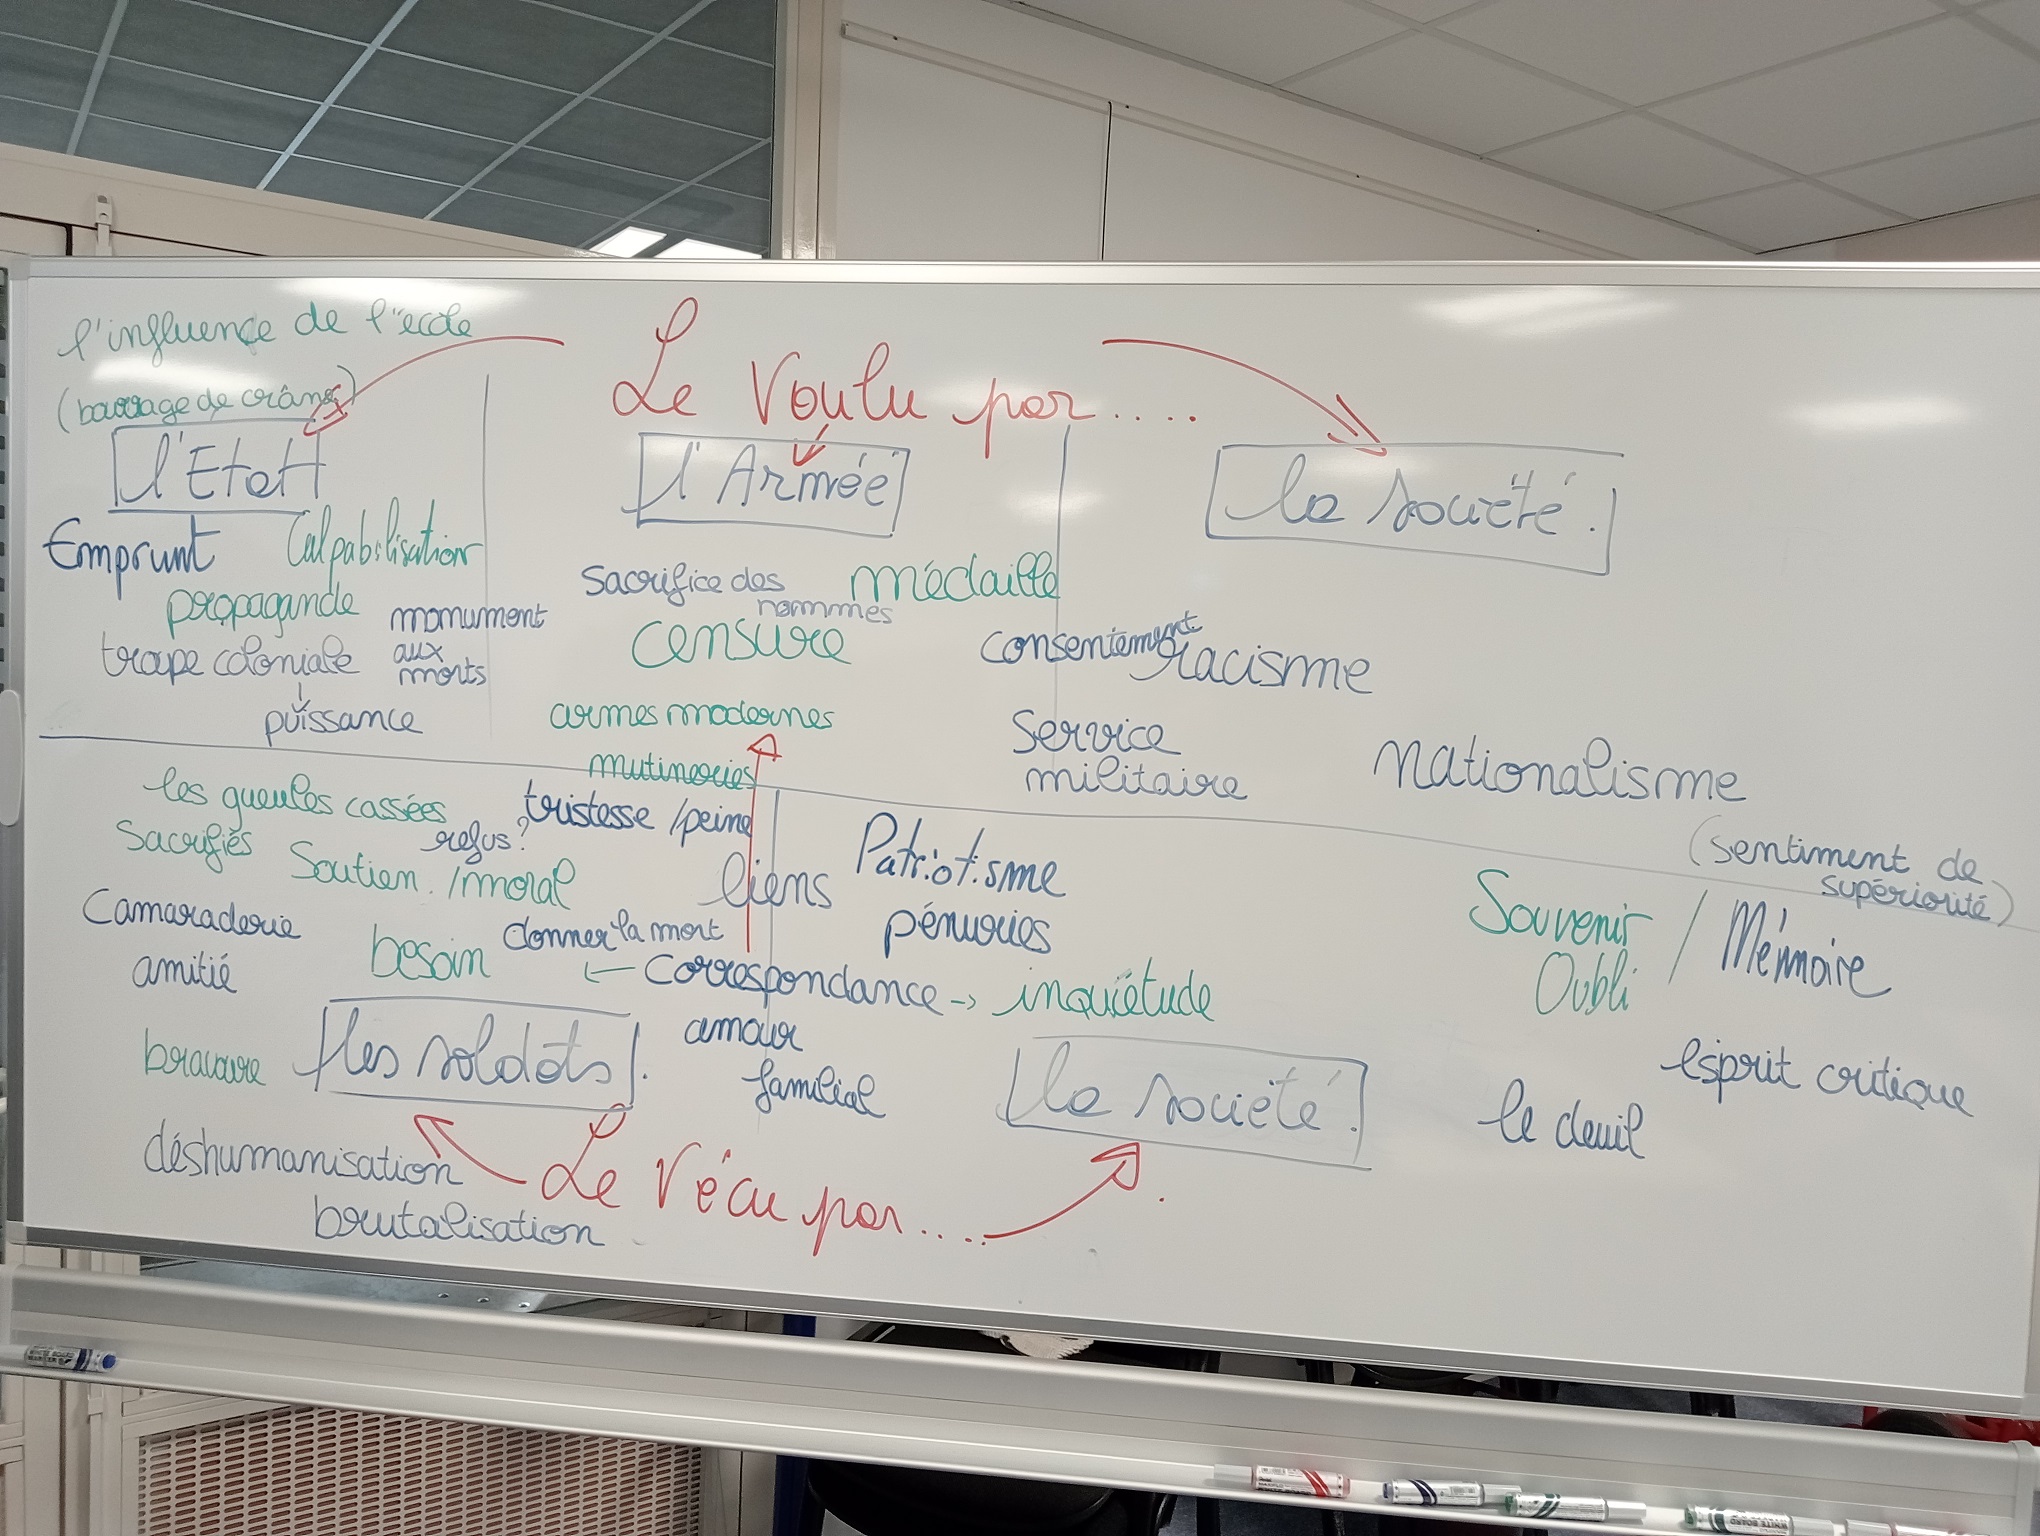 l'influence de l'école
(bourrage de crâne)
Le Voulu par....
l'Etat
l'Armée
la société.
Emprunt
Calpabilisation
propagande
monument
aux
morts
troupe coloniale
puissance
Sacrifice des
hommes
médaille
censure
armes modernes
mutineries
consentement
racisme
service
militaire
nationalisme
(sentiment de
supériorité)
les gueules cassées
Sacrifiés
refus?
tristesse /peine
Soutien. /moral
liens
Patriotisme
pénuries
Camaraderie
amitié
besoin
donner la mort
← correspondance -> inquiétude
amour
familial
Souvenir / Mémoire
Oubli
esprit critique
le deuil
bravoure
les soldats.
la société.
déshumanisation
brutalisation
Le Vécu par.....